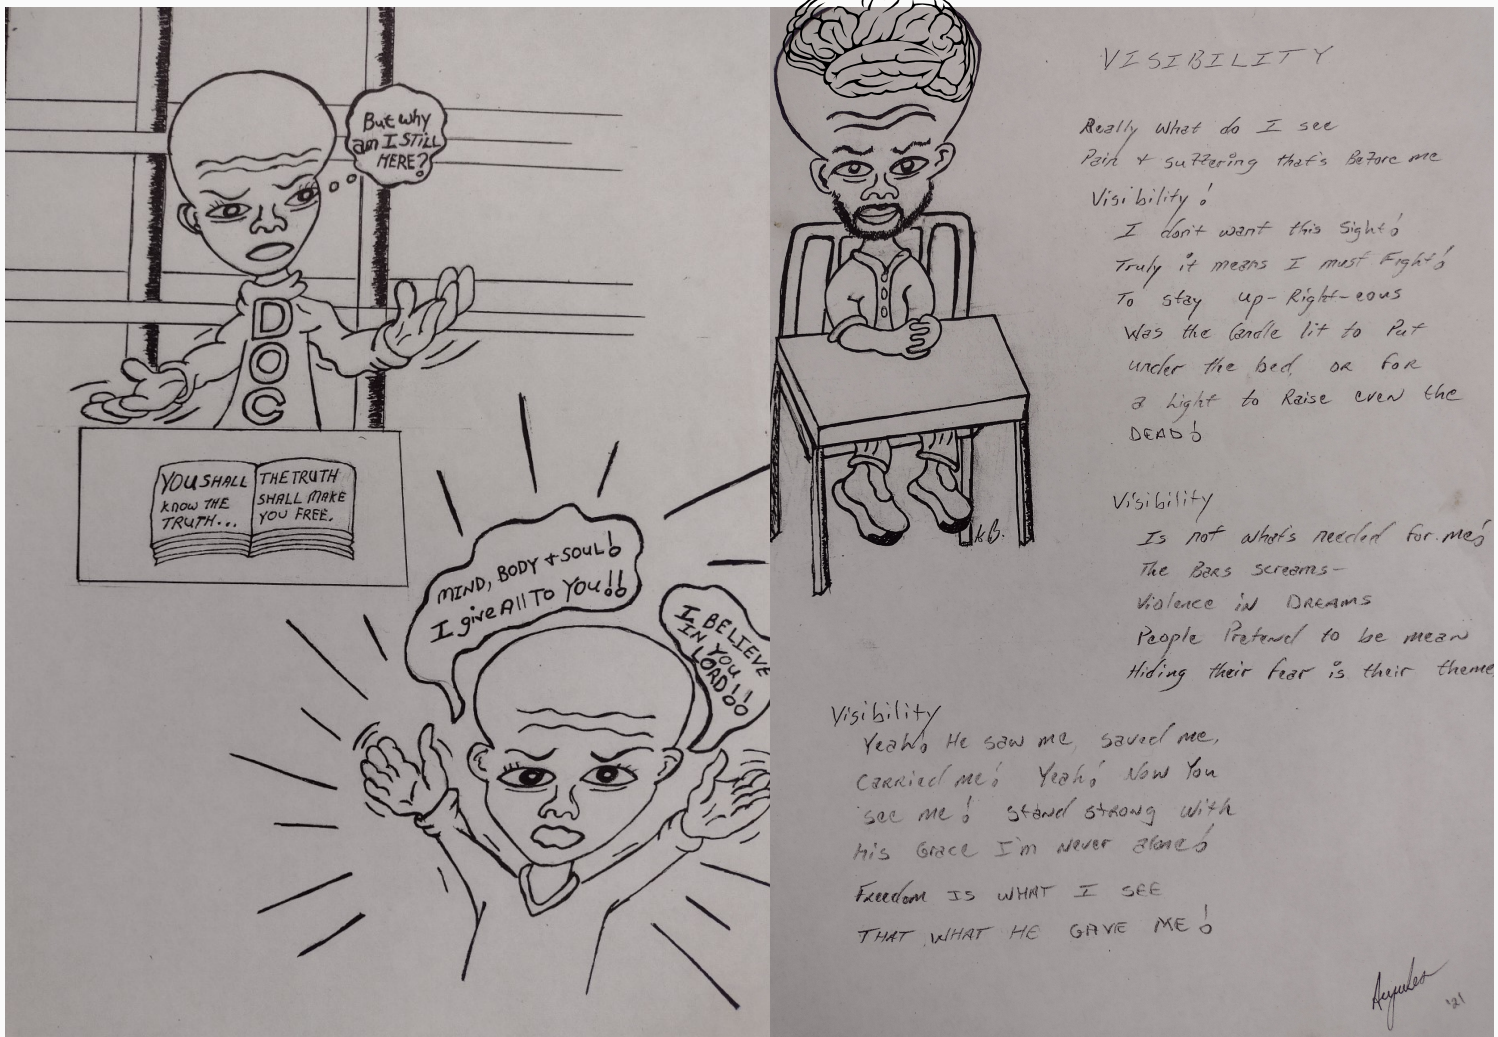 But why
am I STILL
HERE?
D
O
C
YOU SHALL
KNOW THE
TRUTH...
THE TRUTH
SHALL MAKE
YOU FREE.
MIND, BODY + SOUL!
I give All To You!!
I BELIEVE
IN YOU
LORD!!
VISIBILITY
Really what do I see
Pain + suffering that's Before me
Visibility!
I don't want this Sight!
Truly it means I must Fight!
To stay up-Right-eous
Was the Candle lit to Put
under the bed, or for
a Light to Raise even the
DEAD!
K.B.
Visibility
Is not what's needed for me!
The Bars screams-
Violence in DREAMS
People Pretend to be mean
Hiding their fear is their theme
Visibility
Yeah! He saw me, saved me,
Carried me! Yeah! Now You
see me! Stand strong with
His Grace I'm never alone!
Freedom IS WHAT I SEE
THAT WHAT HE GAVE ME!
'21